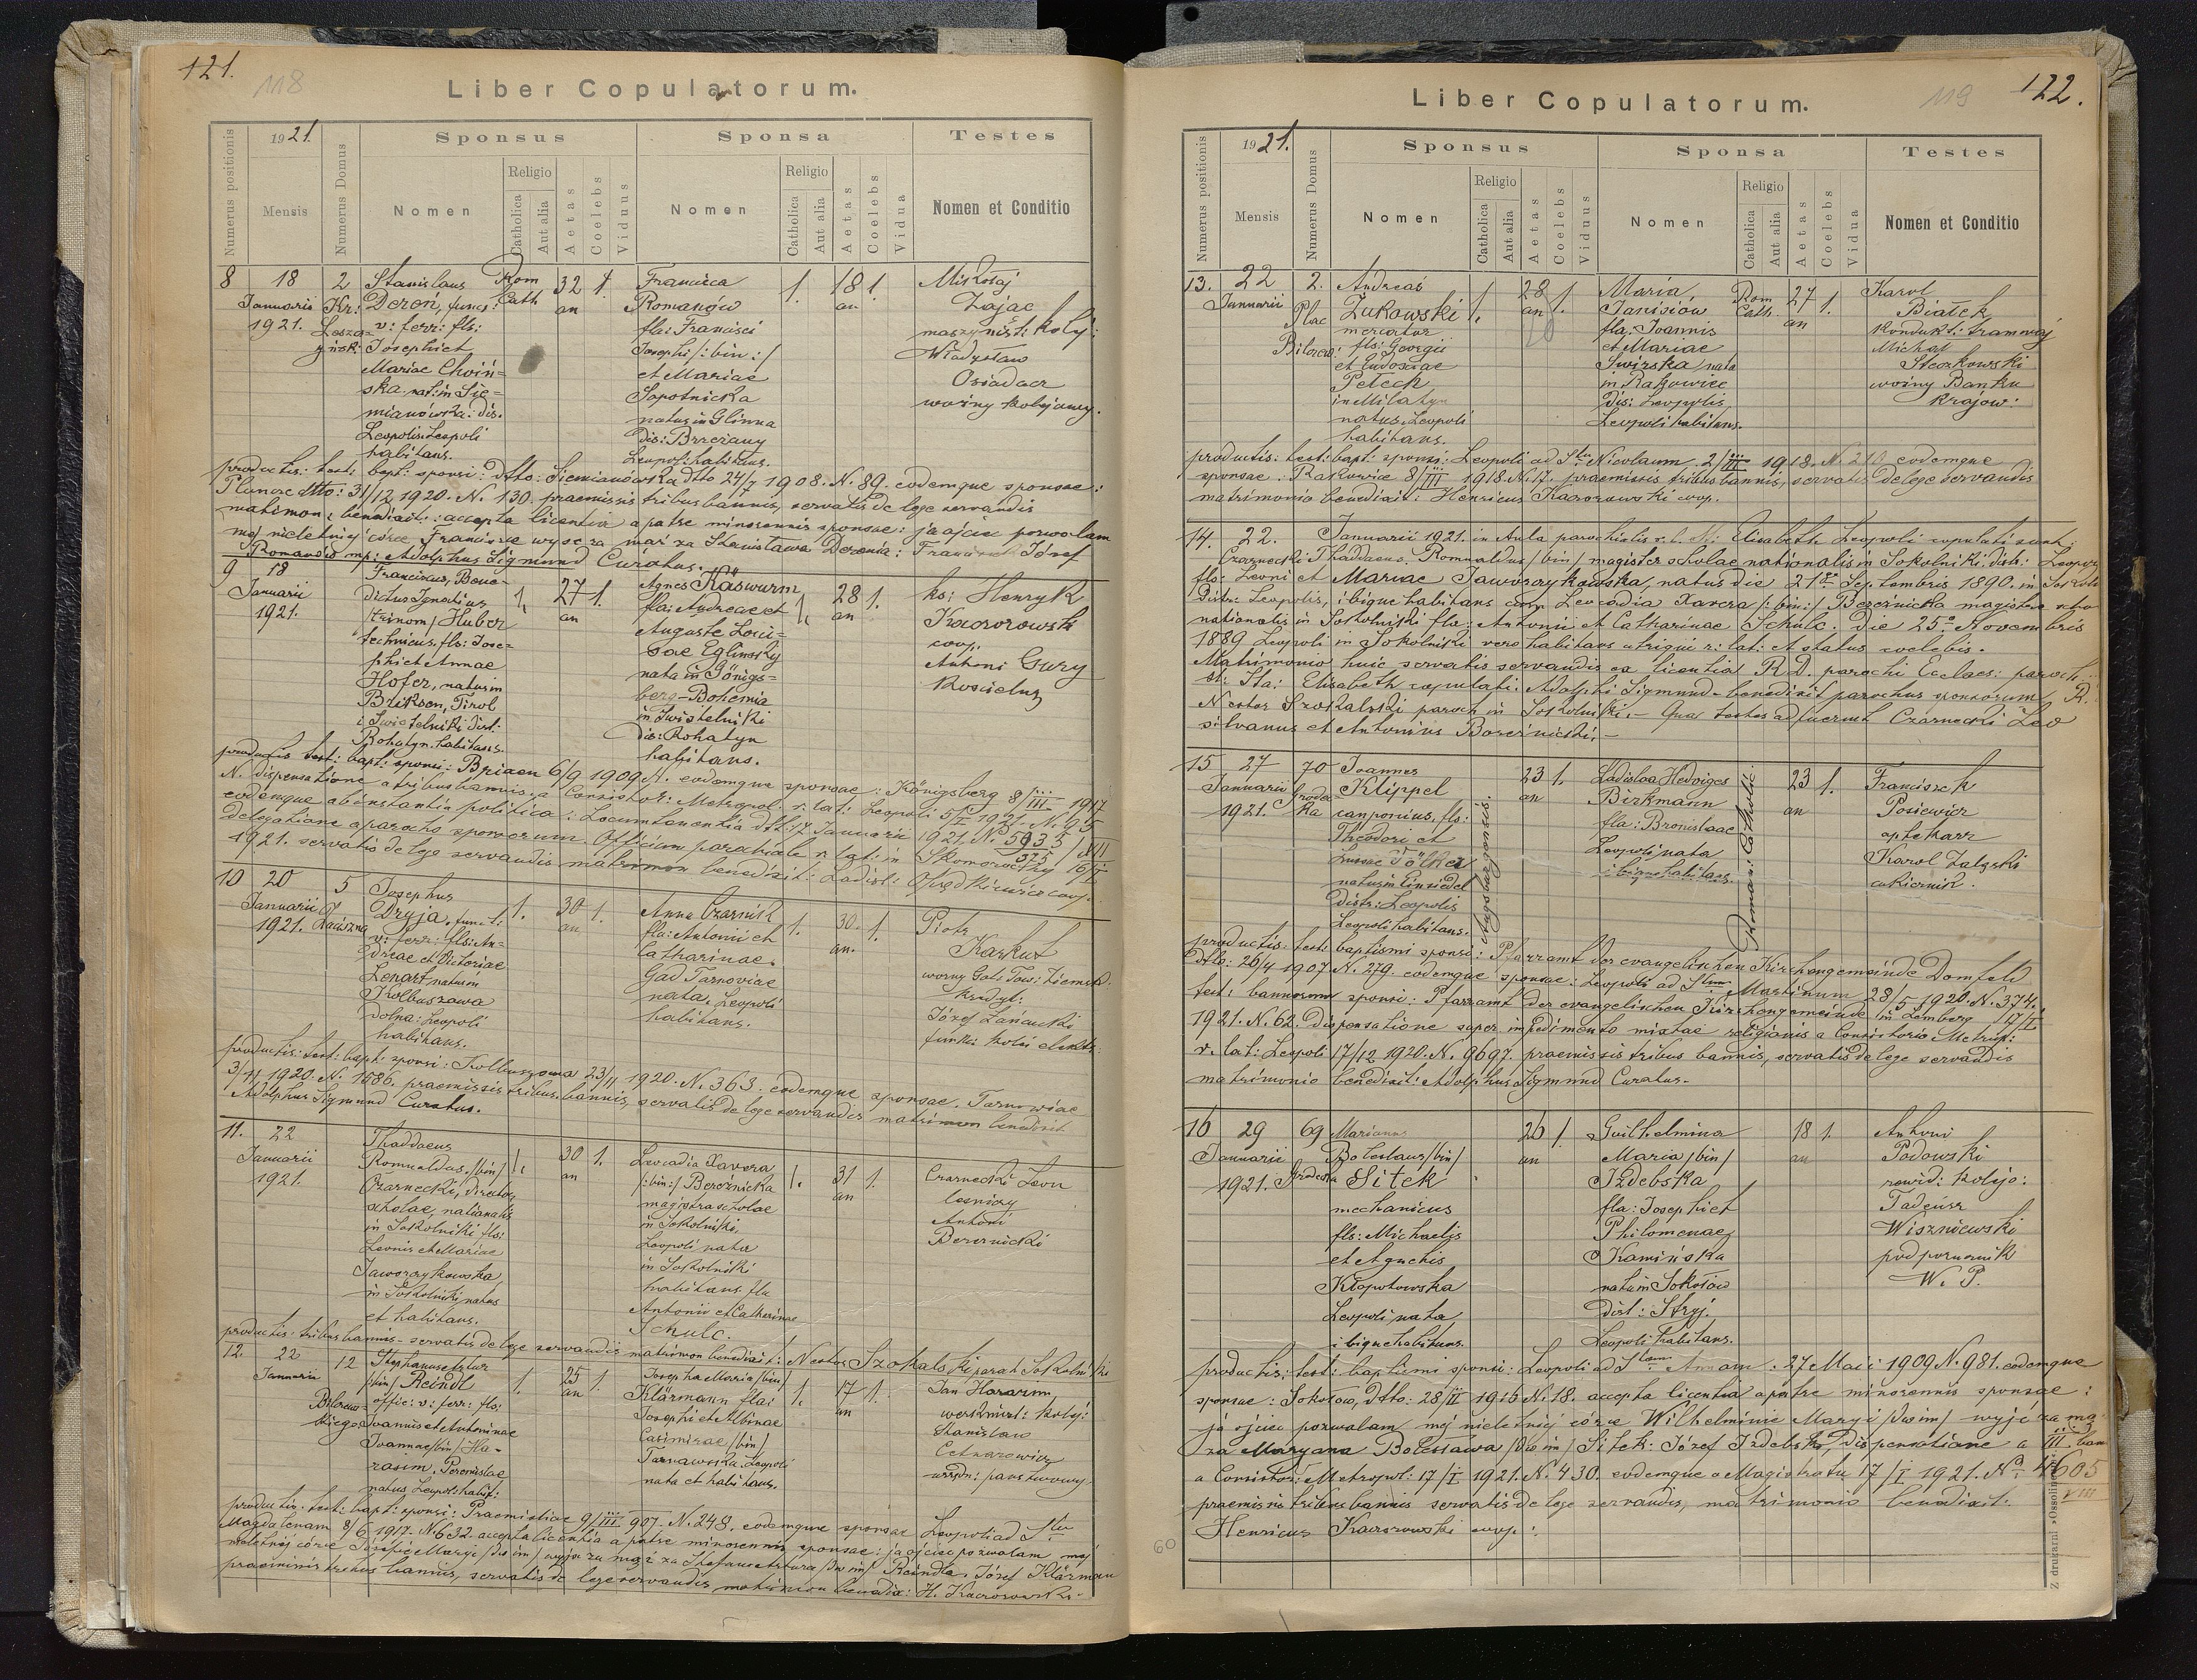 121.
118
Liber Copulatorum.
Numerus positionis
1921.
Mensis
Numerus Domus
Sponsus
Nomen
Religio
Catholica
Aut alia
Aetas
Coelebs
Viduus
Sponsa
Nomen
Religio
Catholica
Aut alia
Aetas
Coelebs
Vidua
Testes
Nomen et Conditio
8 18 2 Stanislaus Rom 32 1 Francisca 1. 18 1. Mikołaj
Januarii Kr: Doroń, funcj: Cath an Romanów an Zając
1921. v: ferr: fls: fla: Francisci maszynist: kolej:
Josephi et Josephi /:bin:/ Władysław
Mariae Choiń= et Mariae Osiadacz
ska nat: in Sie= Sopotnicka woźny kolejowy.
mianówka: dis. nata in Glinna
Leopolis Leopoli dis: Brzeżany
habitans. Leopol: habitans.
productis: test: bapt: sponsi: dtto: Siemianówka dtto 24/7 1908. N. 89. eodemque sponsae:
dtto: 31/12 1920. N. 130. praemissis tribus bannis, servatis de lege servandis
matrimon: benedixit: accepta licentia a patre minorennis sponsae: ja ojciec pozwalam
mej nieletniej córce Franciszce wyjść za mąż za Stanisława Doronia: Franciszek Józef
Romanów mp: Adolphus Sigmund Curatus.
9 18 Franciscus, Bene= 1. 27 1. Agnes Käswurm 1. 28 1. ks: Henryk
Januarii dictus Ignatius an fla: Andreae et an Kaczorowski
1921. /trinom/ Huber Auguste Loui= coop.
technicus, fls: Jose= sae Eglinsky Antoni Gury
phi et Annae nata in Königs= Kościelny
Hofer, natus in berg-Bohemia
Brixen, Tirol in Świstelniki
i Świstelniki Dist: dis: Rohatyn
Rohatyn. habitans. habitans.
productis test: bapt: sponsi: Brixen 6/9 1909 A. eodemque sponsae: Königsberg 8/III 1917
N. dispensatione a tribus bannis: a Consistor: Metropol: r: lat: Leopoli 5/I 1921. N. 95
eodemque ab instantia politica: Locumtenentia dtt: 17 Januarii 1921, No 5935/375 XIII
delegatione a parocho sponsorum. Officium parochiale r. lat: in Skomorochy 16/I
1921. servatis de lege servandis matrimon benedixit: Ladisl: coop.
10 20 5 Josephus 1. 30 1. Anna Czarnik 1. 30. 1. Piotr
Januarii Dryja, funct: an fla: Antonii et an. Karkut
1921. Zaciszna v: ferr: fls: An= Catharinae. woźny Gal: Tow: ziemsk.
dreae et Victoriae Gad Tarnoviae kredyt:
Lenart natus in nata. Leopoli Józef Łańcucki
Kolbuszowa habitans. funkc: kolei elektr:
dolna: Leopoli
habitans.
productis: test: bapt: sponsi: Kolbuszowa 23/11 1920. N. 363. eodemque sponsae. Tarnoviae
3/11 1920. N. 1586. praemissis tribus bannis, servatis de lege servandis matrimon benedixit
Adolphus Sigmund Curatus.
11. 22 Thaddaeus 1. 30 1. Leocadia Xavera 1. 31 1. Czarnecki Leon
Januarii Romualdus, /bin/ an /:bin:/ Bereźnicka an leśniczy
1921. Czarnecki, director magistra scholae Antoni
scholae, nationalis in Sokolniki, Bereźnicki
in Sokolniki fls: Leopoli nata
Leonis et Mariae in Sokolniki
Jaworczykowska, habitans fla
in Sokolniki, natus Antonii et Catharinae
et habitans. Schulc.
productis: tribus bannis - servatis de lege servandis matrimon benedixit: Nestor Szokalski paroch Sokolniki
12. 22 12 Stephanus Artur 1. 25 1. Josepha Maria /bin/ 1. 17 1. Jan Harasim,
Januarii /bin/ Reindl an Klärmann fla: an werkmist: kolej:
offic: v: ferr: fls: Josephi et Albinae Stanisław
Joannis et Antoninae Casimirae /bin/ Cetnarowicz
Joannae /bin/ Ha= Tarnawska. Leopoli urzędn: państwowy.
rasim. Peremislae nata et habitans.
natus Leopol: habit:
productis. test: bapt: sponsi: Praemisliae 9/III 907. N. 248. eodemque sponsae Leopoli ad Stu
Magdalenam 8/6 1917. N. 632 accepta licentia a patre minorennis sponsae: ja ojciec pozwalam mej
nieletniej córce Józefie Maryi /dw im/ wyjść za mąż za Stefana Artura /dw im/ Reindla. Józef Klärman
praemissis tribus bannis, servatis de lege servandis matrimon benedix: H. Kaczorowski.
122.
119
Liber Copulatorum.
Numerus positionis
1921.
Mensis
Numerus Domus
Sponsus
Nomen
Religio
Catholica
Aut alia
Aetas
Coelebs
Viduus
Sponsa
Nomen
Religio
Catholica
Aut alia
Aetas
Coelebs
Vidua
Testes
Nomen et Conditio
13. 22 2. Andreas 1. 28 1. Maria Rom 27 1. Karol
Januarii Plac Żukowski an Janisiów Cath. an Białek
mercator fla: Joannis kondukt: tramwaj
fls: Georgii et Mariae Michał
et Eudosciae Świrska nata Staszkowski
Petech in Rakowiec woźny Banku
in Milatyn dis: Leopolis Krajow:
natus. Leopoli Leopoli habitans.
habitans.
productis: test: bapt: sponsi. Leopoli ad Stu Nicolaum. 2/III 1918. N. 210 eodemque
sponsae: Rakowiec 8/III 1918. N. 17, praemissis tribus bannis, servatis de lege servandis
matrimonio benedixit: Henricus Kaczorowski coop.
14. 22. Januarii 1921. in Aula parochialis r. l. St: Elisabeth Leopoli copulati sunt:
Czarnecki Thaddaeus, Romualdus /bin/ magister scholae nationalis in Sokolniki. dist: Leopol
fls: Leoni et Mariae Jaworczykowska, natus die 21o Septembris 1890. in Sokoln
Distr: Leopolis, ibique habitans cum Leocadia Xavera /:bin:/ Bereźnicka magistra scho
nationalis in Sokolniki fla: Antonii et Catharinae Schulc. die 25o Novembris
1889 Leopoli in Sokolniki vero habitans utrique r: lat: et status coelebis.
Matrimonio huic servatis servandis ex licentia R. D. parochi Eccles: paroch:
ad Sta: Elisabeth copulati. Adolphi Sigmund - benedixit parochus sponsorum R.
Nestor Szokalski paroch in Sokolniki. - Qua testes adfuerunt Czarnecki Leo
silvanus et Antonius Bereźnicki. -
15 27 70 Joannes Augsburgensis. 23 1. Ladislaa Hedviges Roman: Catholic: 23 1. Franciszek
Januarii Grodec= Klippel an Birkmann an Posiewicz
1921. ka camponius, fls: fla: Bronislaae aptekarz
Theodori et Leopoli nata Karol Zalęski
Tölker ibique habitans. cukiernik.
natus in Einsiedel
Distr: Leopolis
Leopoli habitans.
productis: test: baptismi sponsi: Pfarramt der evangelischen Kirchengemeinde Dornfeld
dtto: 26/4 1907. N. 279. eodemque sponsae: Leopoli ad Stum Martinum 28/5 1920. N. 374.
test: bannorum sponsi: Pfarramt der evangelischen Kirchengemeinde in Lemberg 17/I
1921. N. 62. Dispensatione super impedimento mixtae religionis a Consistorio Metrop:
r. lat: Leopoli 17/12 1920. N. 9697. praemissis tribus bannis, servatis de lege servandis
matrimonio benedixit: Adolphus Sigmund Curatus.
16 29 69 Marianus 26 1. Guilhelmina 18 1. Antoni
Januarii Grodecka Boleslaus /bin/ an Maria /bin/ an Podowski
1921. Sitek Izdebska rewid: kolejo:
mechanicus fla: Josephi et Tadeusz
fls: Michaelis Philomenae Wiszniewski
et Agnetis Kamińska podporucznik
Kłopotowska nata in Sokołów W. P.
Leopoli nata, dist: Stryj.
ibique habitans. Leopoli habitans.
productis: test: baptismi sponsi: Leopoli ad Stam Annam. 27 Maii 1909 N. 981. eodemque
sponsae: Sokołow, dtto: 28/II 1916 N. 18. accepta licentia a patre minorennis sponsae:
ja ojciec pozwalam mej nieletniej córce Wilhelminie Maryi /dw im/ wyjść za mą
za Maryana Bolesława /dw im/ Sitek: Józef Izdebski, dispensatione a III ban
a Consistor: Metropol: 17/I 1921. N. 430. eodemque a Magistratu 17/I 1921. No 4605
praemissis tribus bannis servatis de lege servandis, matrimonio benedixit. VIII
Henricus Kaczorowski coop:.
60
Z drukarni »Ossolin